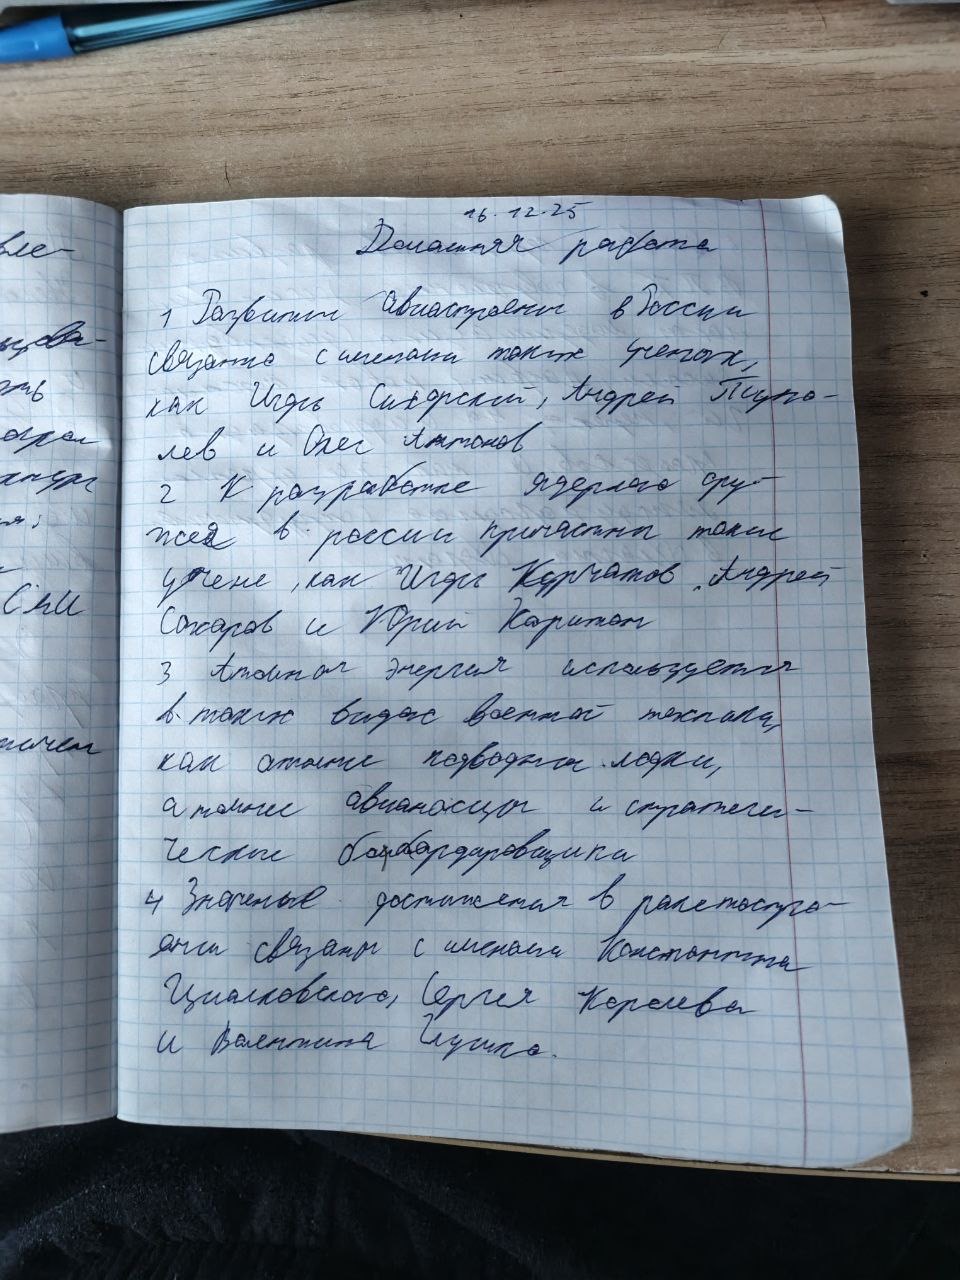 16.12.25
Домашняя работа
вле-
1 Развитие авиастроения в России
связанно с именами таких ученых,
как Игорь Сикорский, Андрей Тупо-
лев и Олег Антонов
2 К разработке ядерного ору-
жея в россии причастны такие
учене, как Игорь Курчатов, Андрей
СМИ
Сахаров и Юрий Харитон
3 Атомная энергия используется
в таких видах военной техники,
как атомные подводные лодки,
атомные авианосцы и стратеги-
ческие бомбардировщики
4 Значеные достижения в ракетостро-
ении связаны с именами Константина
Циалковского, Сергея Королева
и Валентина Глушко.